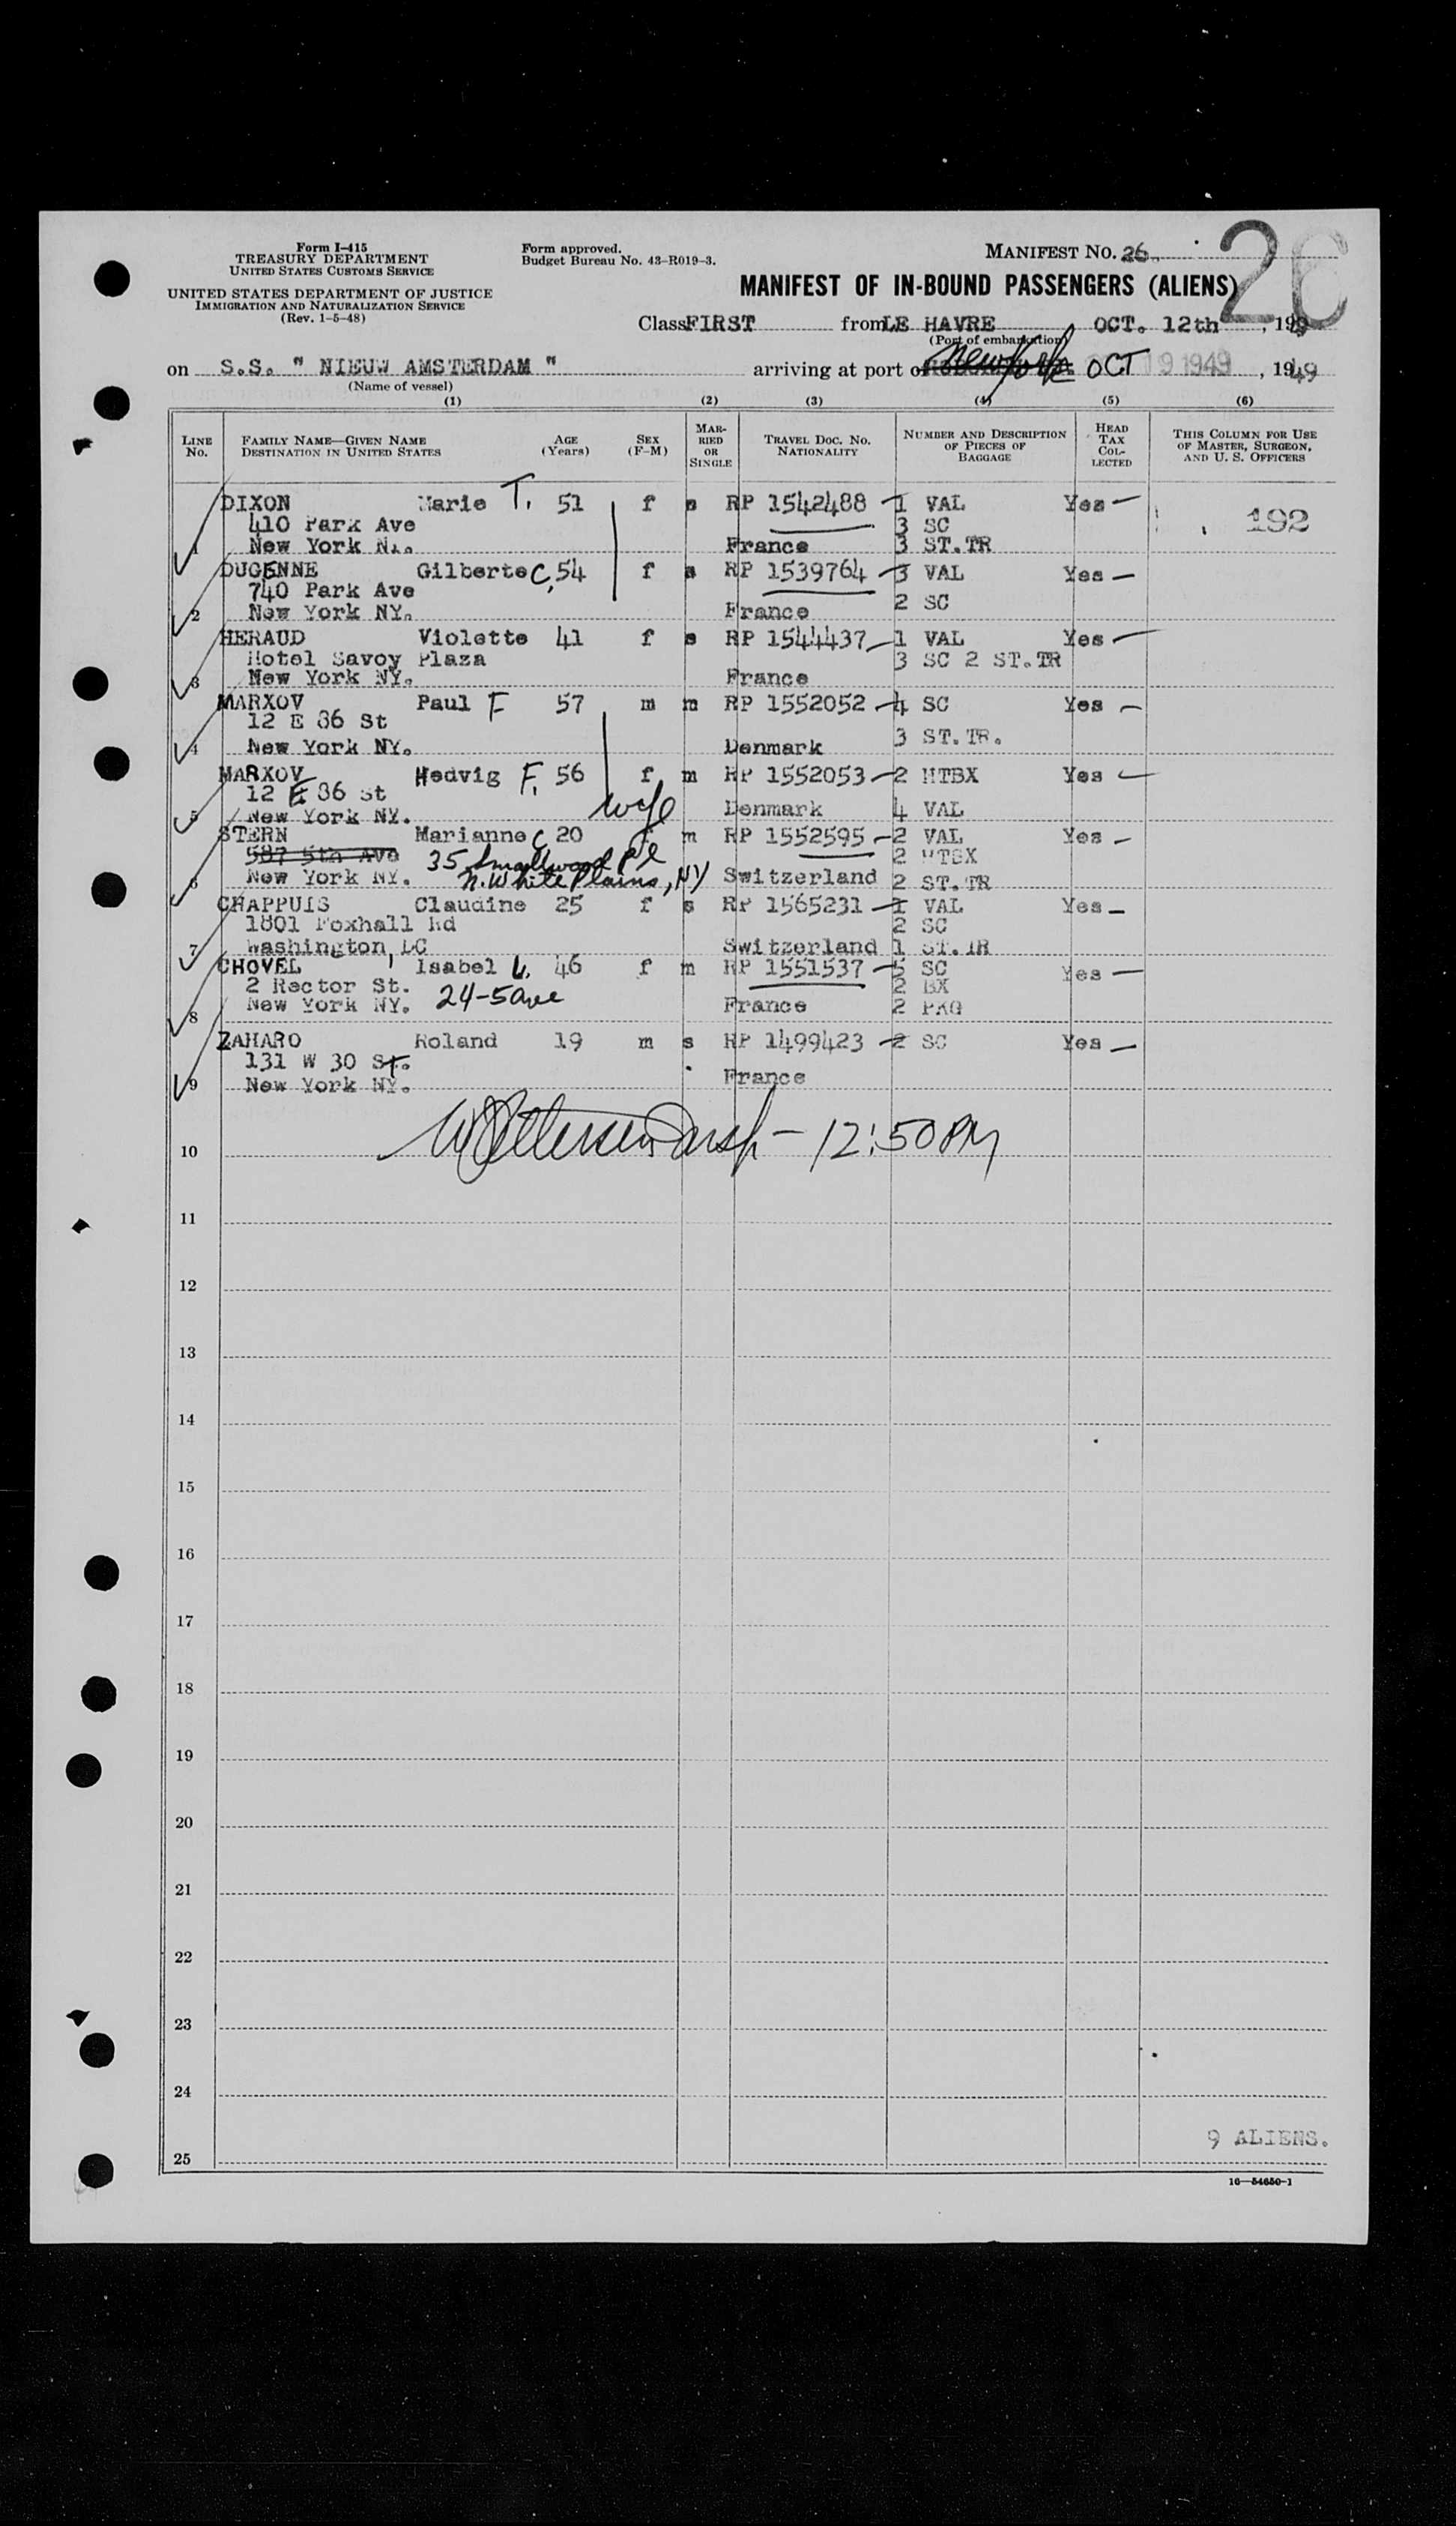 Form I-415
TREASURY DEPARTMENT
UNITED STATES CUSTOMS SERVICE
UNITED STATES DEPARTMENT OF JUSTICE
IMMIGRATION AND NATURALIZATION SERVICE
(Rev. 1-5-48)
Form approved.
Budget Bureau No. 43-R019-3.
MANIFEST NO. 26
26
MANIFEST OF IN-BOUND PASSENGERS (ALIENS)
Class FIRST from LE HAVRE OCT. 12th, 19
(Port of embarkation)
on S.S. " NIEUW AMSTERDAM " arriving at port of New York OCT 19 1949, 1949
(Name of vessel)
(1) (2) (3) (4) (5) (6)
LINE No. FAMILY NAME—GIVEN NAME DESTINATION IN UNITED STATES AGE (Years) SEX (F-M) MARRIED OR SINGLE TRAVEL DOC. NO. NATIONALITY NUMBER AND DESCRIPTION OF PIECES OF BAGGAGE HEAD TAX COLLECTED THIS COLUMN FOR USE OF MASTER, SURGEON, AND U. S. OFFICERS
DIXON Marie T. 51 f s RP 1542488 — 1 VAL Yes — 192
410 Park Ave 3 SC
1 New York NY. France 3 ST.TR
DUGENNE Gilberte C. 54 f s RP 1539764 — 3 VAL Yes —
740 Park Ave 2 SC
2 New York NY. France
HERAUD Violette 41 f s RP 1544437 — 1 VAL Yes —
Hotel Savoy Plaza 3 SC 2 ST.TR
3 New York NY. France
MARXOV Paul F 57 m m RP 1552052 — 4 SC Yes —
12 E 86 St 3 ST.TR.
4 New York NY. Denmark
MARXOV Hedvig F. 56 f m RP 1552053 — 2 HTBX Yes —
12 E 86 St wife Denmark 4 VAL
5 New York NY.
STERN Marianne C 20 f m RP 1552595 — 2 VAL Yes —
587 5th Ave 35 Smallwood Pl 2 HTBX
6 New York NY. N. White Plains, NY Switzerland 2 ST.TR
CHAPPUIS Claudine 25 f s RP 1565231 — 1 VAL Yes —
1801 Foxhall Rd 2 SC
7 Washington, DC Switzerland 1 ST.TR
CHOVEL Isabel L. 46 f m RP 1551537 — 5 SC Yes —
2 Rector St. 2 BX
8 New York NY. 24-5 ave France 2 PKG
ZAHARO Roland 19 m s RP 1499423 — 2 SC Yes —
131 W 30 St.
9 New York NY. France
10 12:50 PM
11
12
13
14
15
16
17
18
19
20
21
22
23
24
9 ALIENS.
25
16—54650-1